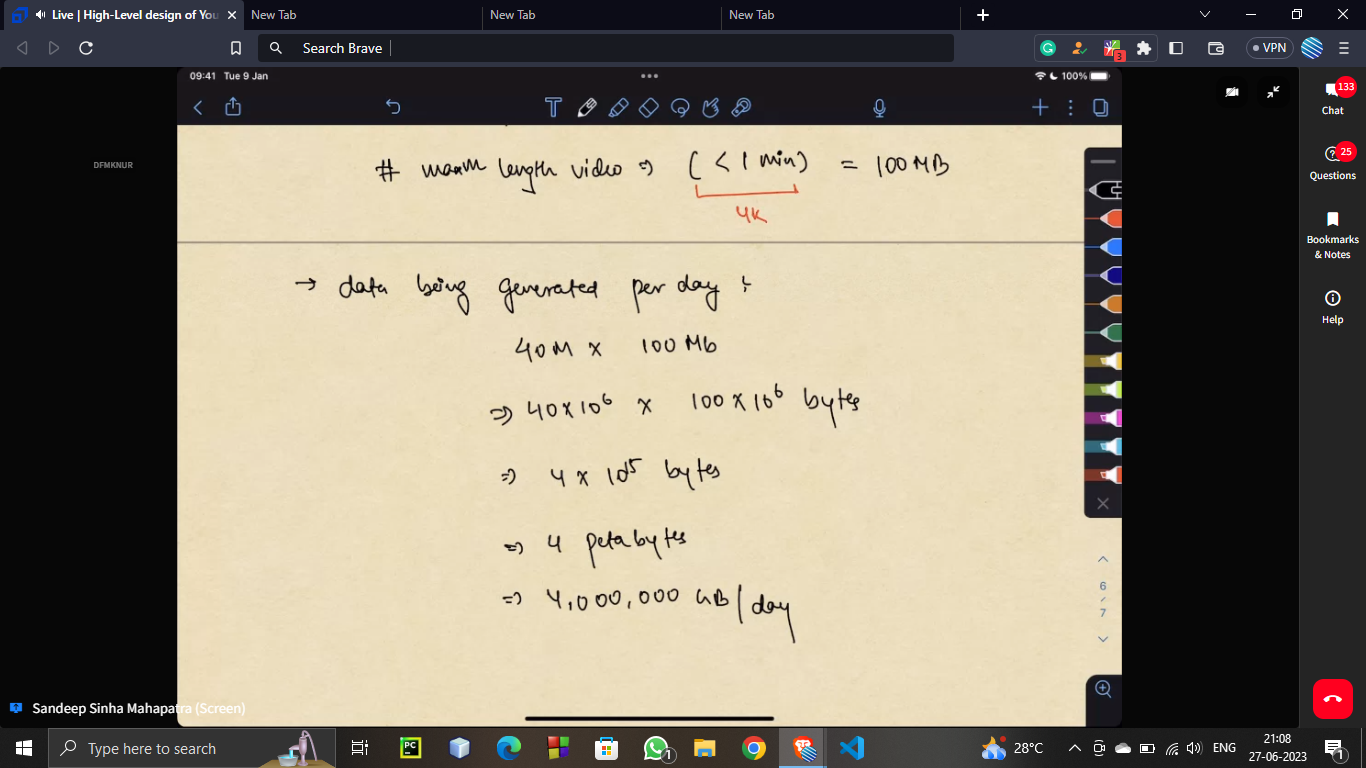 Live | High-Level design of You
New Tab
New Tab
New Tab
Search Brave
3
VPN
09:41 Tue 9 Jan
100%
DFMKNUR
# maxm length video ⇒ ( < 1 min) = 100 MB
4K
→ data being generated per day :
40M x 100 Mb
⇒ 40 x 10⁶ x 100 x 10⁶ bytes
⇒ 4 x 10¹⁵ bytes
⇒ 4 petabytes
⇒ 4,000,000 GB/day
6
7
133
Chat
25
Questions
Bookmarks
& Notes
Help
Sandeep Sinha Mahapatra (Screen)
Type here to search
PC
1
28°C
ENG
21:08
27-06-2023
1